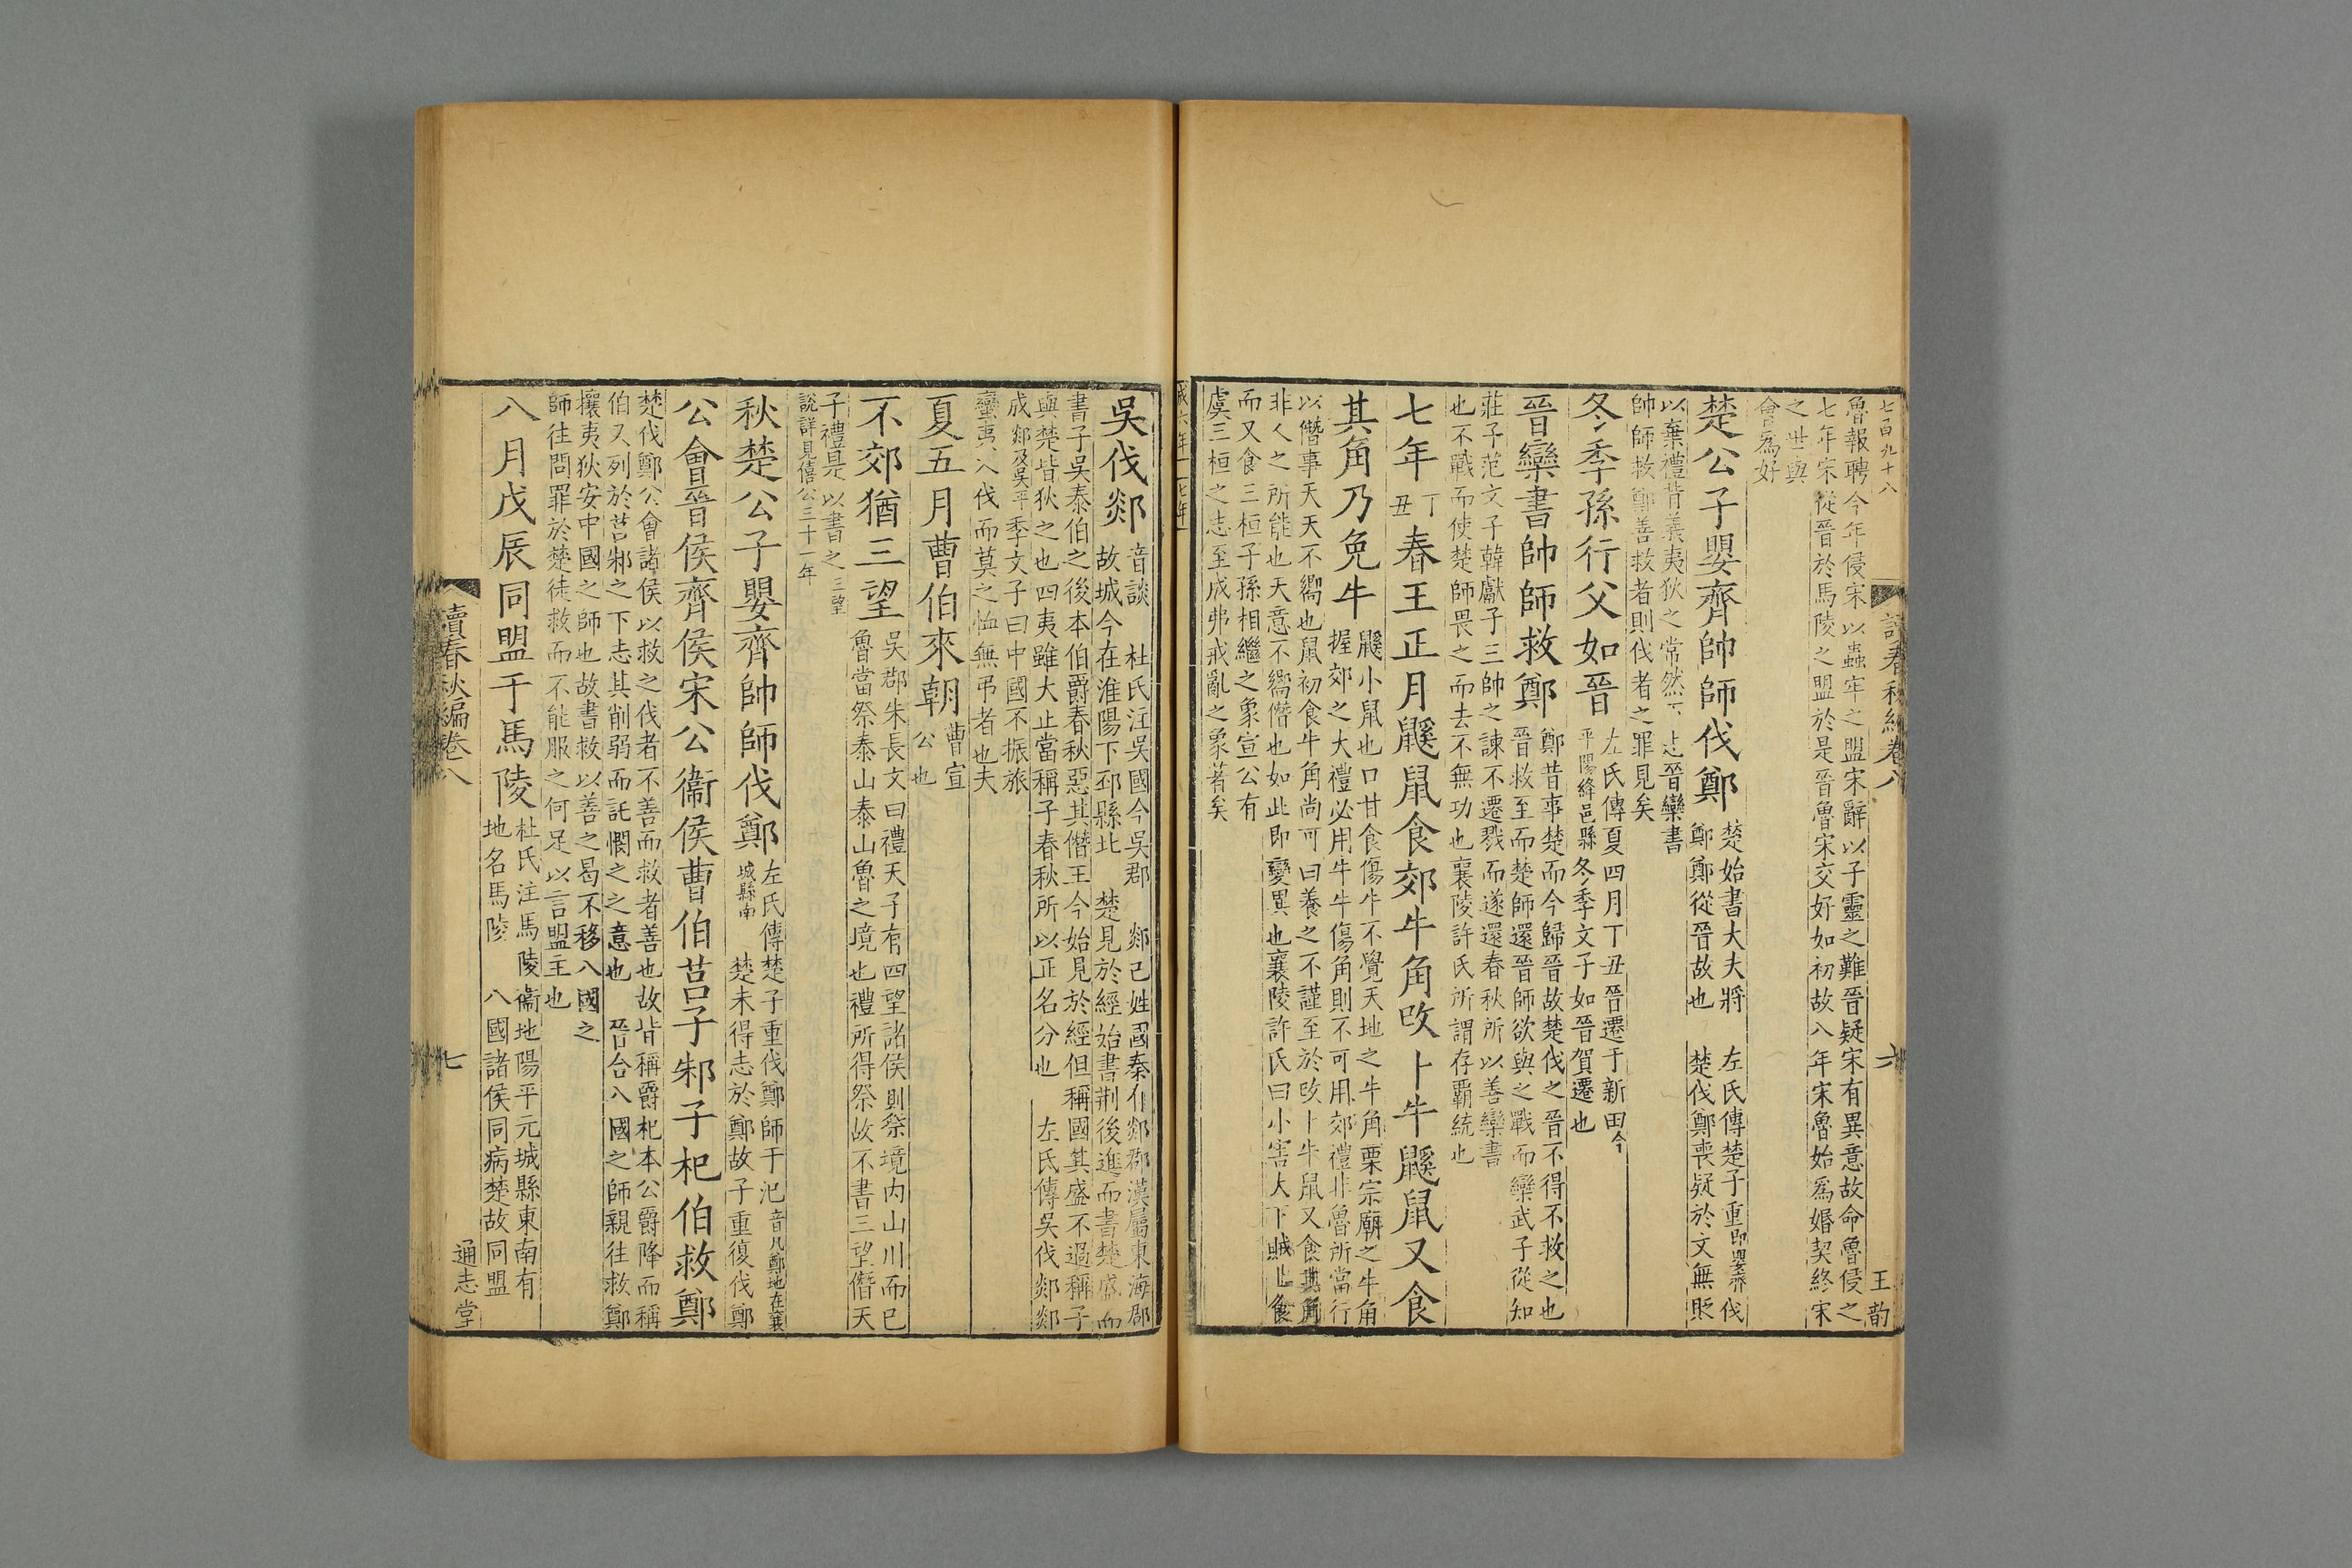 七百九十八
讀春秋編卷八
六
王韵
魯報聘今年侵宋以蟲牢之盟宋辭以子靈之難晉疑宋有異意故命魯侵之
七年宋從晉於馬陵之盟於是晉魯宋交好如初故八年宋魯始爲婚契終宋
之世與
會爲好
楚公子嬰齊帥師伐鄭
楚始書大夫將 左氏傳楚子重即嬰齊伐
鄭鄭從晉故也 楚伐鄭喪疑於文無貶
以棄禮背義夷狄之常然 上晉欒書
帥師救鄭善救者則伐者之罪見矣
冬季孫行父如晉
左氏傳夏四月丁丑晉遷于新田今
平陽絳邑縣冬季文子如晉賀遷也
晉欒書帥師救鄭
鄭昔事楚而今歸晉故楚伐之晉不得不救之也
晉救至而楚師還晉師欲與之戰而欒武子從知
莊子范文子韓獻子三帥之諫不遷戮而遂還春秋所以善欒書
也不戰而使楚師畏之而去不無功也襄陵許氏所謂存覇統也
七年丁丑春王正月鼷鼠食郊牛角改卜牛鼷鼠又食
其角乃免牛
鼷小鼠也口甘食傷牛不覺天地之牛角栗宗廟之牛角
握郊之大禮必用牛牛傷角則不可用郊禮非魯所當行
以僭事天天不嚮也鼠初食牛角尚可曰養之不謹至於改卜牛鼠又食其角
非人之所能也天意不嚮僭也如此即變異也襄陵許氏曰小害大下賊上食
而又食三桓子孫相繼之象宣公有
虞三桓之志至成弗戒亂之象著矣
成六年 七年
吳伐郯
音談 杜氏注吳國今吳郡 郯己姓國秦有郯郡漢屬東海郡
故城今在淮陽下邳縣北 楚見於經始書荆後進而書楚盛而
書子吳泰伯之後本伯爵春秋惡其僭王今始見於經但稱國其盛不過稱子
與楚皆狄之也四夷雖大止當稱子春秋所以正名分也 左氏傳吳伐郯郯
成郯及吳平季文子曰中國不振旅
蠻夷入伐而莫之恤無弔者也夫
夏五月曹伯來朝
曹宣
公也
不郊猶三望
吳郡朱長文曰禮天子有四望諸侯則祭境内山川而已
魯當祭泰山泰山魯之境也禮所得祭故不書三望僭天
子禮是以書之三望
說詳見僖公三十一年
秋楚公子嬰齊帥師伐鄭
左氏傳楚子重伐鄭師于氾音凡鄭地在襄
城縣南 楚未得志於鄭故子重復伐鄭
公會晉侯齊侯宋公衞侯曹伯莒子邾子杞伯救鄭
楚伐鄭公會諸侯以救之伐者不善而救者善也故皆稱爵杞本公爵降而稱
伯又列於莒邾之下志其削弱而託憫之之意也 晉合八國之師親往救鄭
攘夷狄安中國之師也故書救以善之曷不移八國之
師往問罪於楚徒救而不能服之何足以言盟主也
八月戊辰同盟于馬陵
杜氏注馬陵衞地陽平元城縣東南有
地名馬陵 八國諸侯同病楚故同盟
讀春秋編卷八
七
通志堂